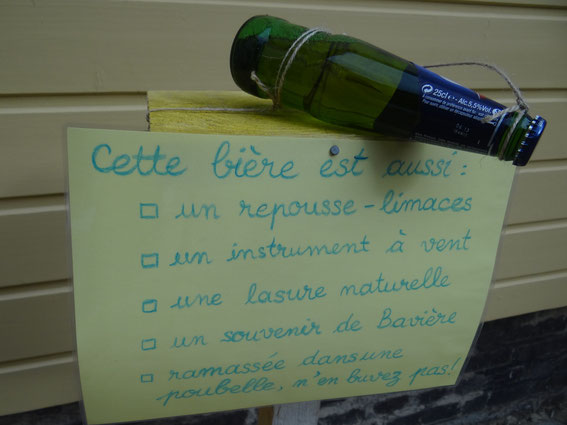 25cl e - Alc.5,5%Vol.
Cette bière est aussi :
un repousse-limaces
un instrument à vent
une lasure naturelle
un souvenir de Bavière
ramassée dans une
poubelle, n'en buvez pas!